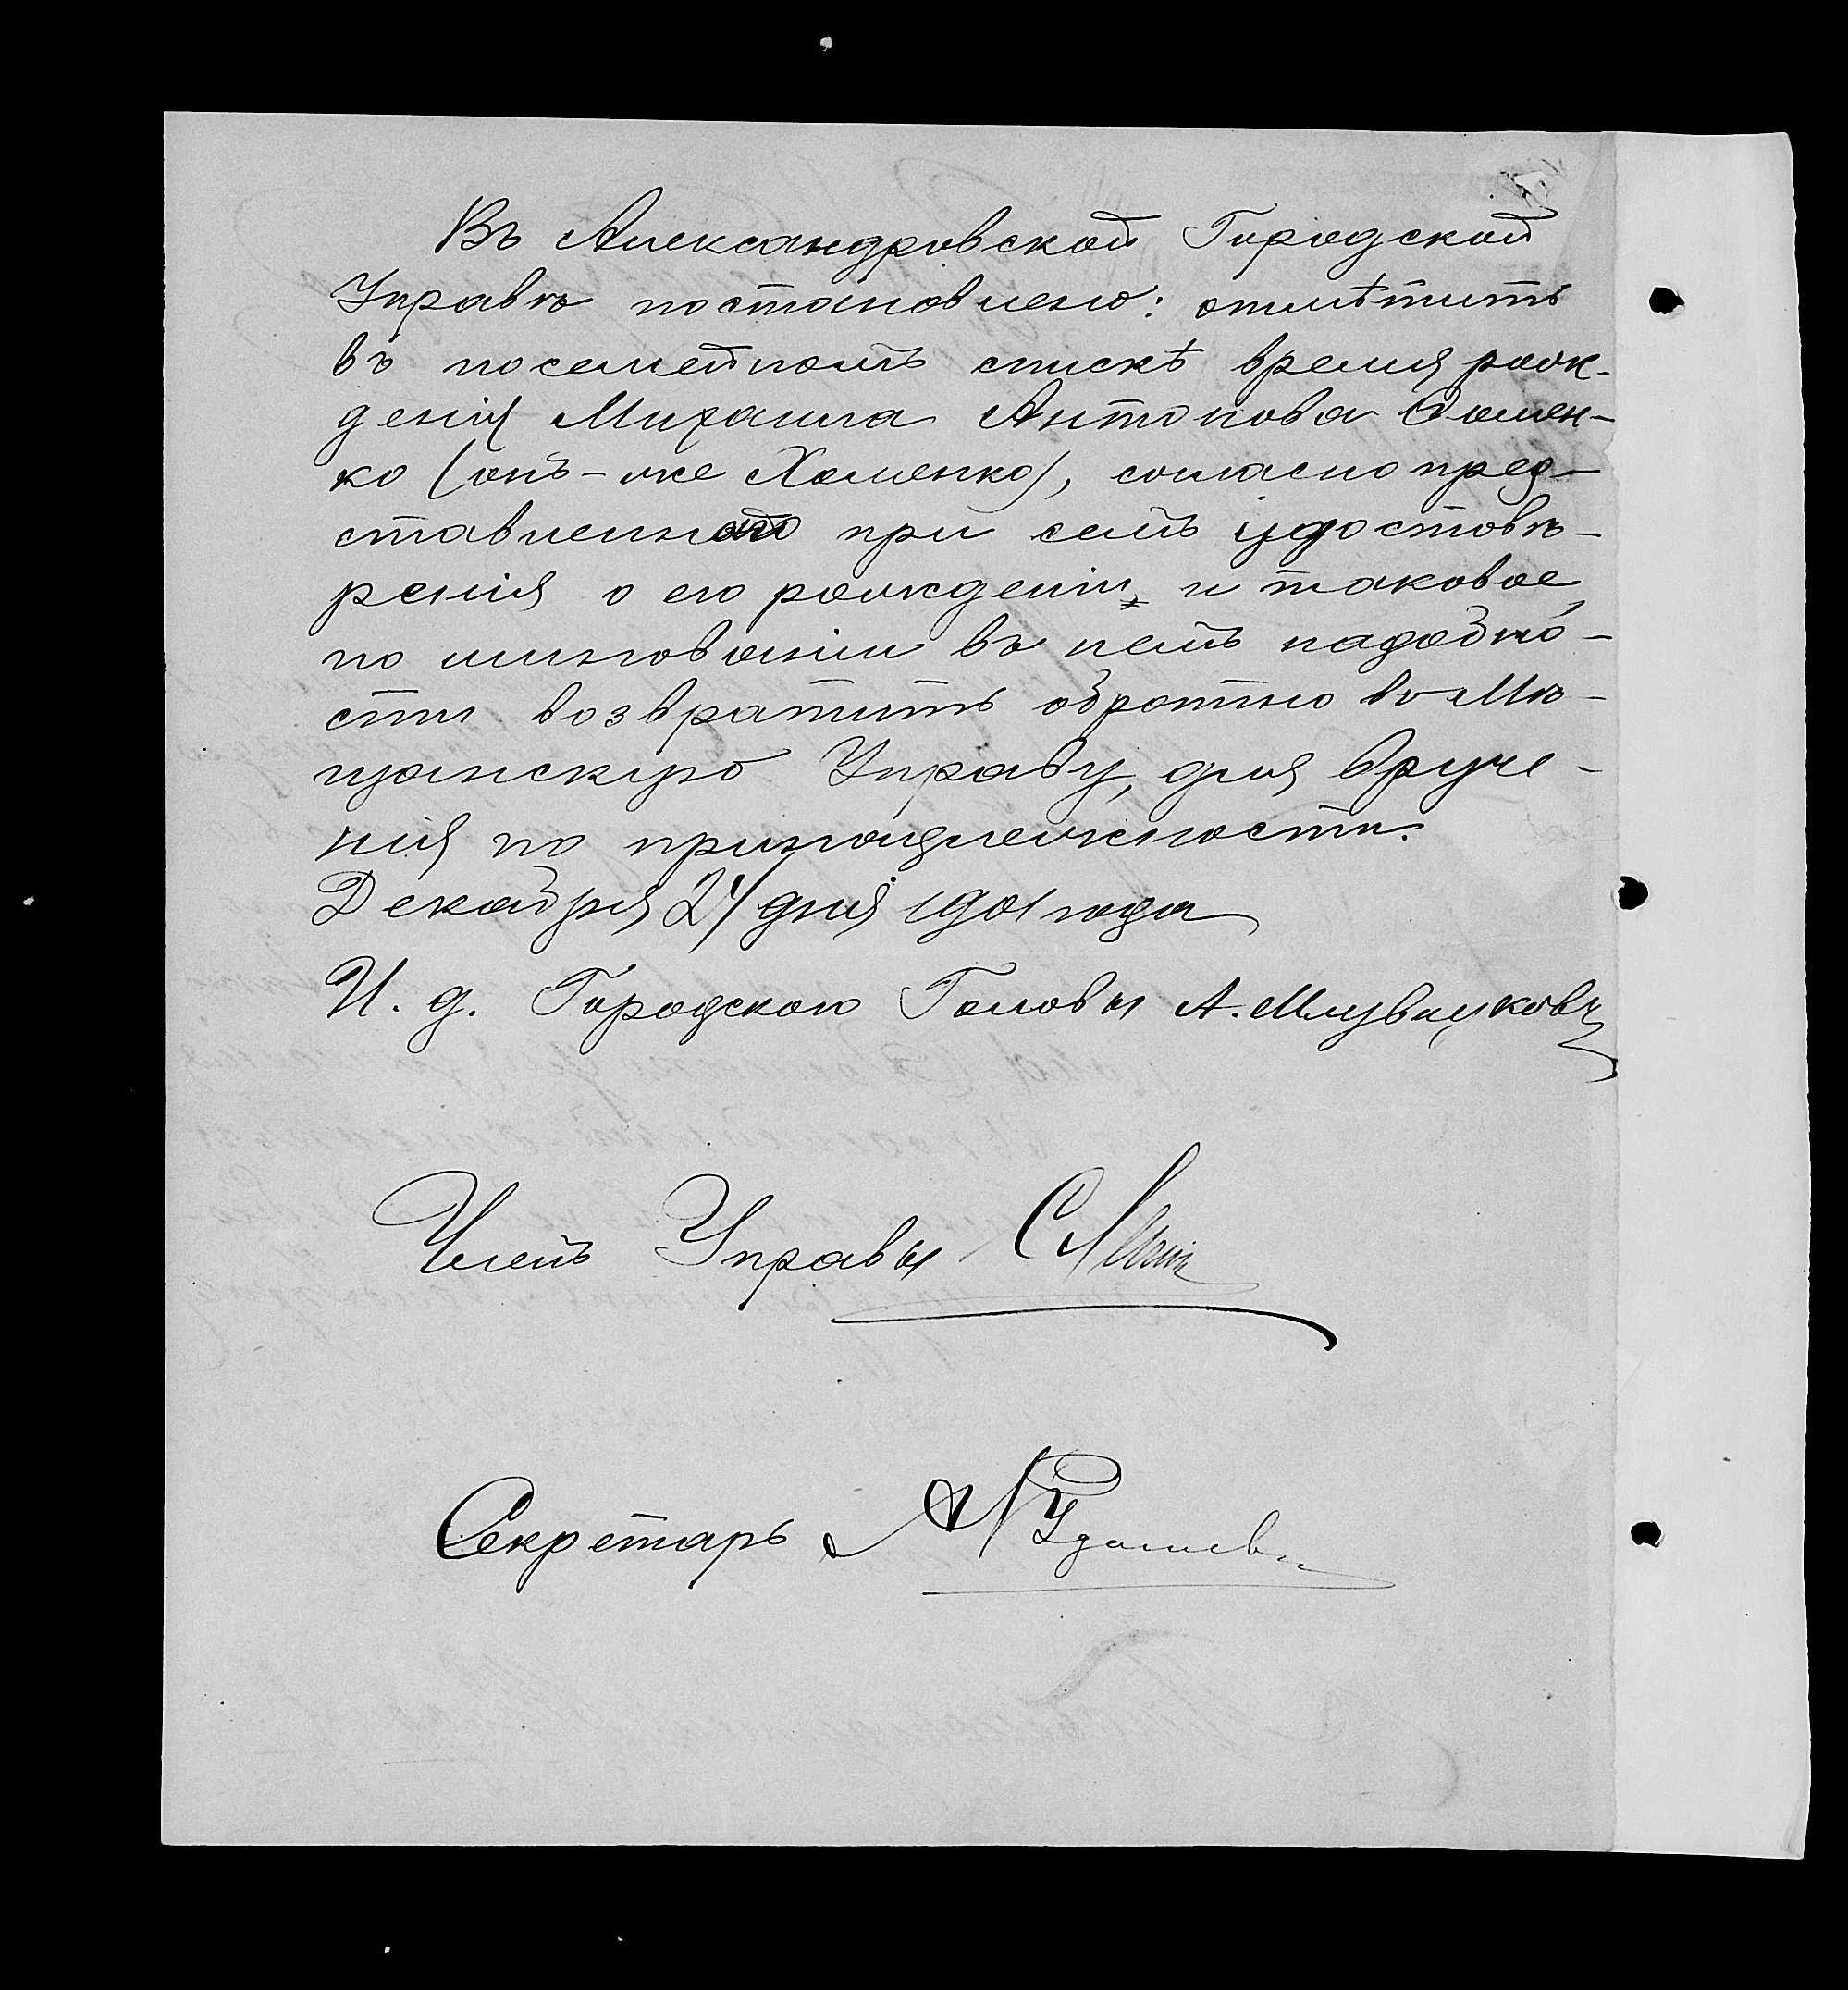 Въ Александровской Городской
Управѣ постановлено: отмѣтить
въ посемейномъ спискѣ время рож-
денія Михаила Антонова Ѳомен-
ко (онъ-же Хоменко), согласно пред-
ставленного при семъ удостовѣ-
ренія о его рожденіи, и таковое,
по минованіи въ немъ надобно-
сти возвратить обратно въ Мѣ-
щанскую Управу, для вруче-
нія по принадлежности.
Декабря 24 дня 1901 года
И. д. Городского Головы А.
Членъ Управы
Секретарь